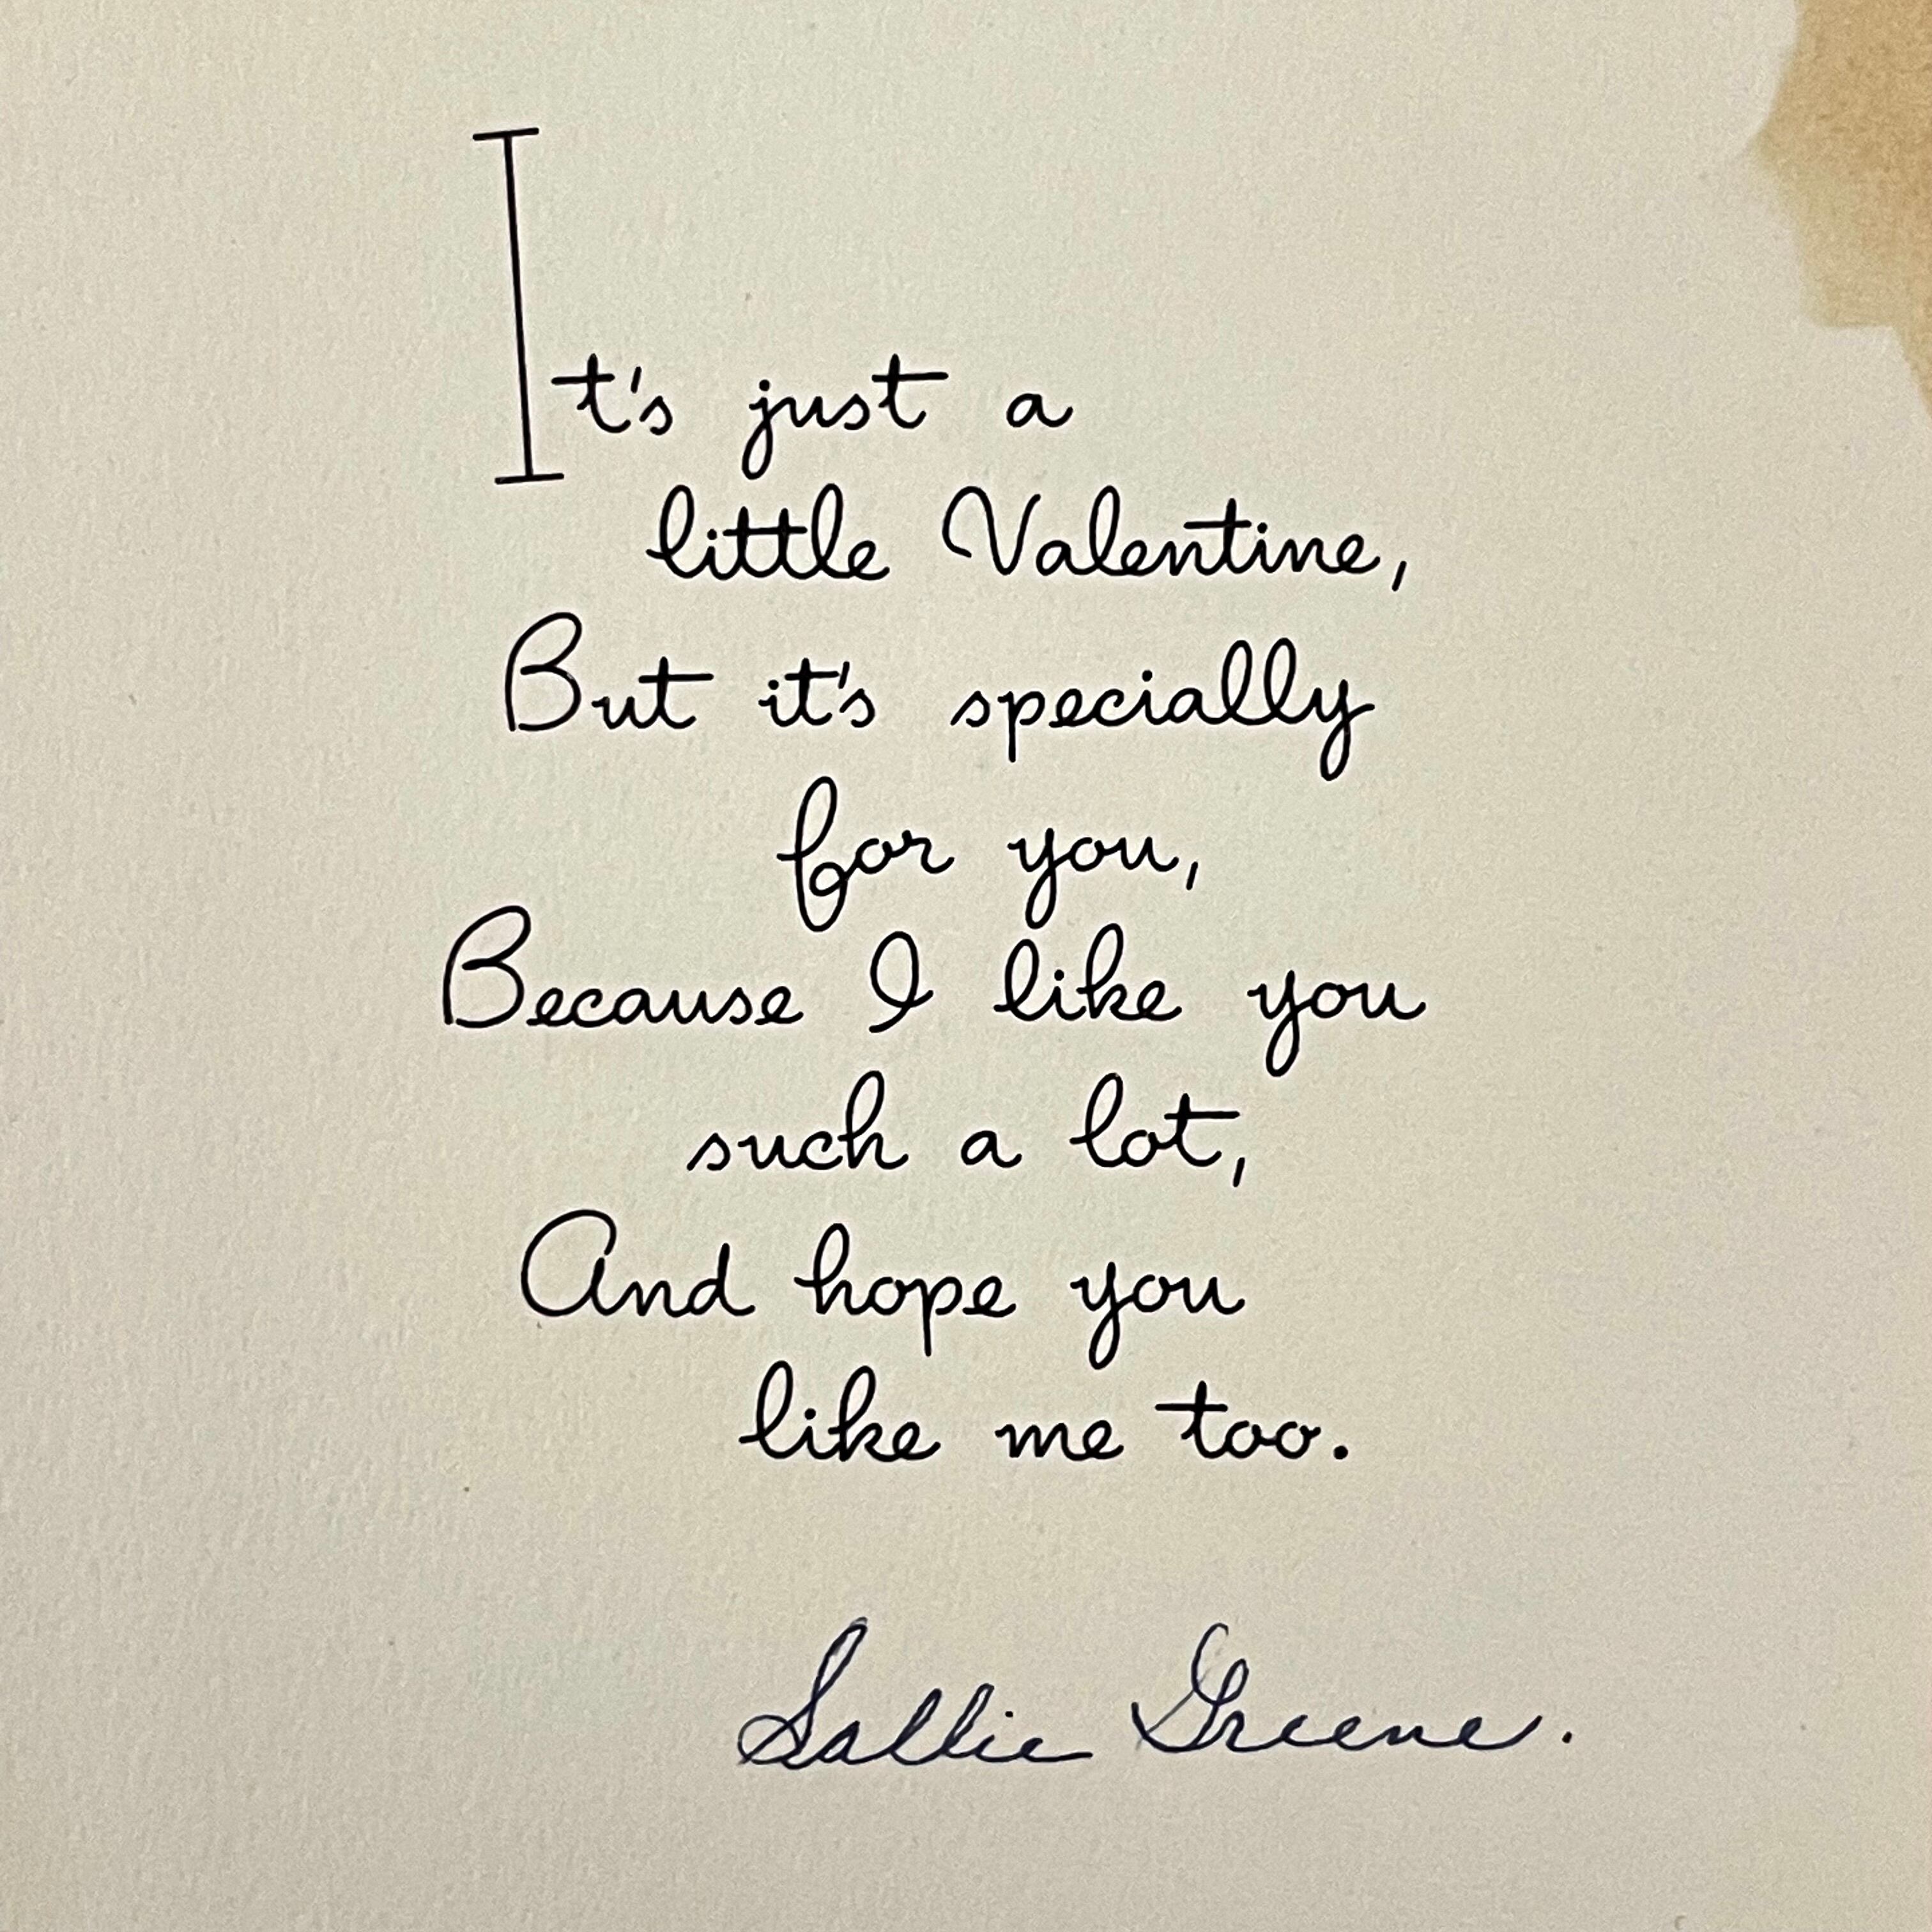 It's just a
little Valentine,
But it's specially
for you,
Because I like you
such a lot,
And hope you
like me too.
Sallie Greene.